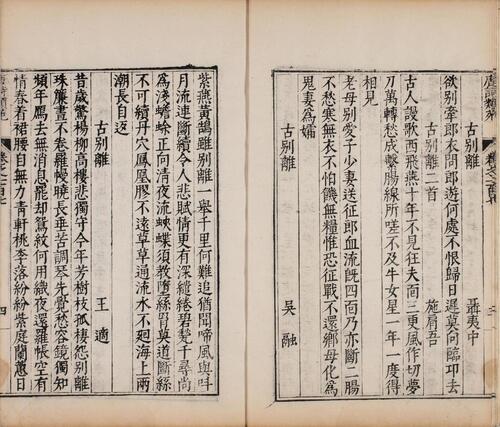 聶夷中
欲別牽郎衣問郎遊何處不恨歸日遲莫向臨邛去
古別離二首
施肩吾
古人謾歌西飛燕十年不見狂夫面三更風作切夢
刀萬轉愁成繫腸線所嗟不及牛女星一年一度得
相見
老母別愛子少妻送征郎血流旣四面乃亦斷二腸
不愁寒無衣不怕饑無糧惟恐征戰不還鄉母化爲
鬼妻爲孀
古別離
吳融
紫燕黃鵠雖別離一舉千里何難追猶聞啼風與叫
月流連斷續令人悲賦情更有深繾綣碧甃千尋尚
爲淺蟾蜍正向清夜流蛺蝶須教墮絲罥莫道斷絲
不可續丹穴鳳凰膠不遠草草通流水不廻海上兩
潮長自返
古別離
王適
昔歲驚楊柳高樓悲獨守今年芳樹枝孤棲怨別離
珠簾晝不卷羅幔曉長垂苦調琴先覺愁容鏡獨知
頻年鴈去無消息罷却鴛紋何用織夜還羅帳空有
情春着裙腰自無力青軒桃李落紛紛紫庭蘭蕙日
四